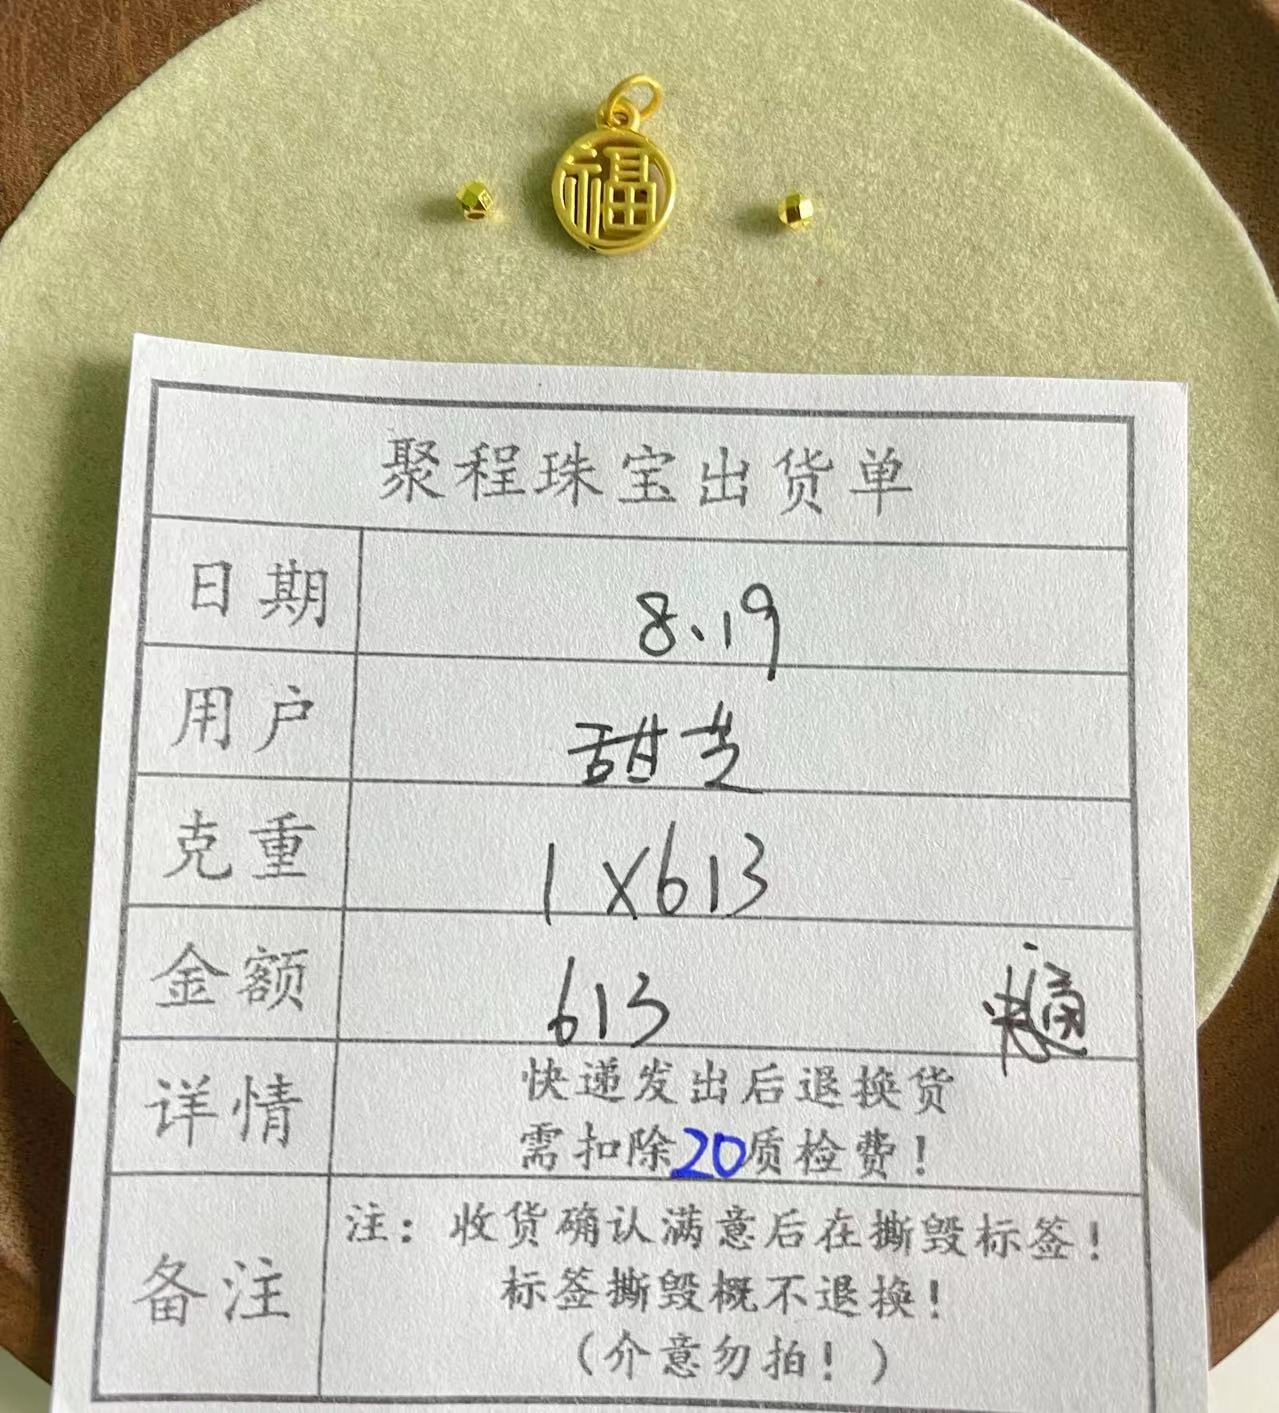 福
聚程珠宝出货单
日期 8.19
用户
克重 1×613
金额 613
详情 快递发出后退换货
需扣除20质检费！
备注 注：收货确认满意后在撕毁标签！
标签撕毁概不退换！
（介意勿拍！）